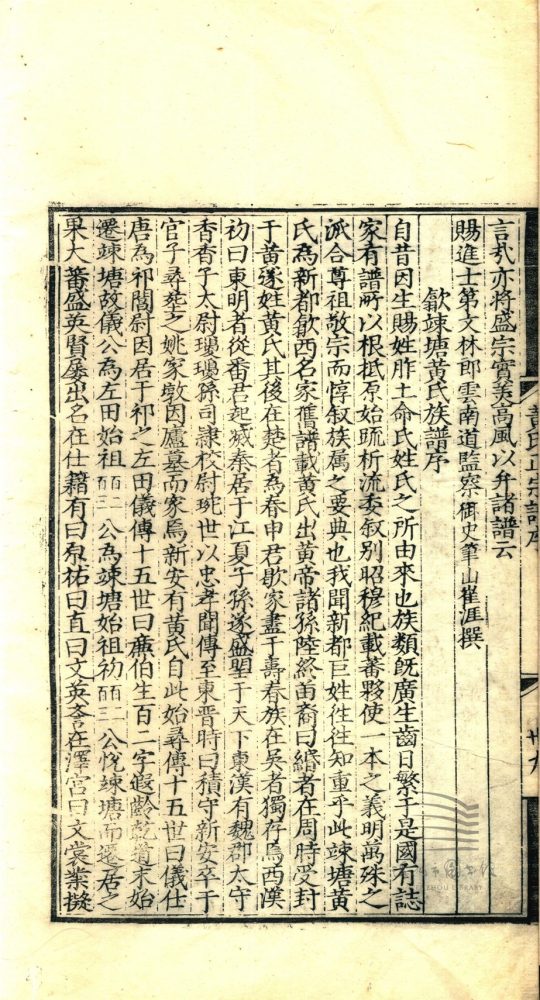 言㢤亦將盛宗實美高風以弁諸譜云
賜進士第文林郎雲南道監察御史筆山崔涯撰
歙竦塘黃氏族譜序
自昔因生賜姓胙土命氏姓氏之所由來也族類旣廣生齒日繁于是國有誌
家有譜所以根抵原始疏析流委叙别昭穆紀載蕃夥使一本之義明萬殊之
派合尊祖敬宗而惇叙族属之要典也我聞新都巨姓徃徃知重乎此竦塘黃
氏為新都歙西名家舊譜載黃氏出黃帝諸孫陸終苗裔曰緡者在周時受封
于黃遂姓黃氏其後在楚者為春申君歇家盡于壽春族在吳者獨存焉西漢
初曰東明者從番君起㓕秦居于江夏子孫遂盛望于天下東漢有魏郡太守
香香子太尉瓊瓊孫司隸校尉琬世以忠孝聞傳至東晋時曰積守新安卒于
官子尋塟之姚家墩因廬墓而家焉新安有黃氏自此始尋傳十五世曰儀仕
唐為祁閶尉因居于祁之左田儀傳十五世曰廉伯生百二字假齡乾道末始
遷竦塘故儀公為左田始祖百二公為竦塘始祖初百二公悅竦塘而遷居之
果大蕃盛英賢屢出名在仕籍有曰泉祐曰直曰文英者在澤宮曰文裳業擬
黃氏正宗譜序
廿九